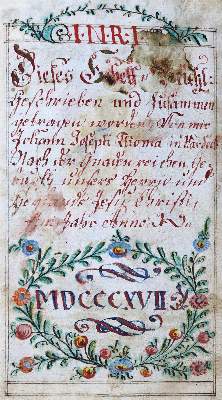 INRI
Dieses
geschrieben und Zusammen
getragen worden Von mir
Johann Joseph Thoma in
Nach der Gnaden reichen Ge
burth unsers Herrn und
Jesu Christi
Im Jahr Anno
MDCCCXVII